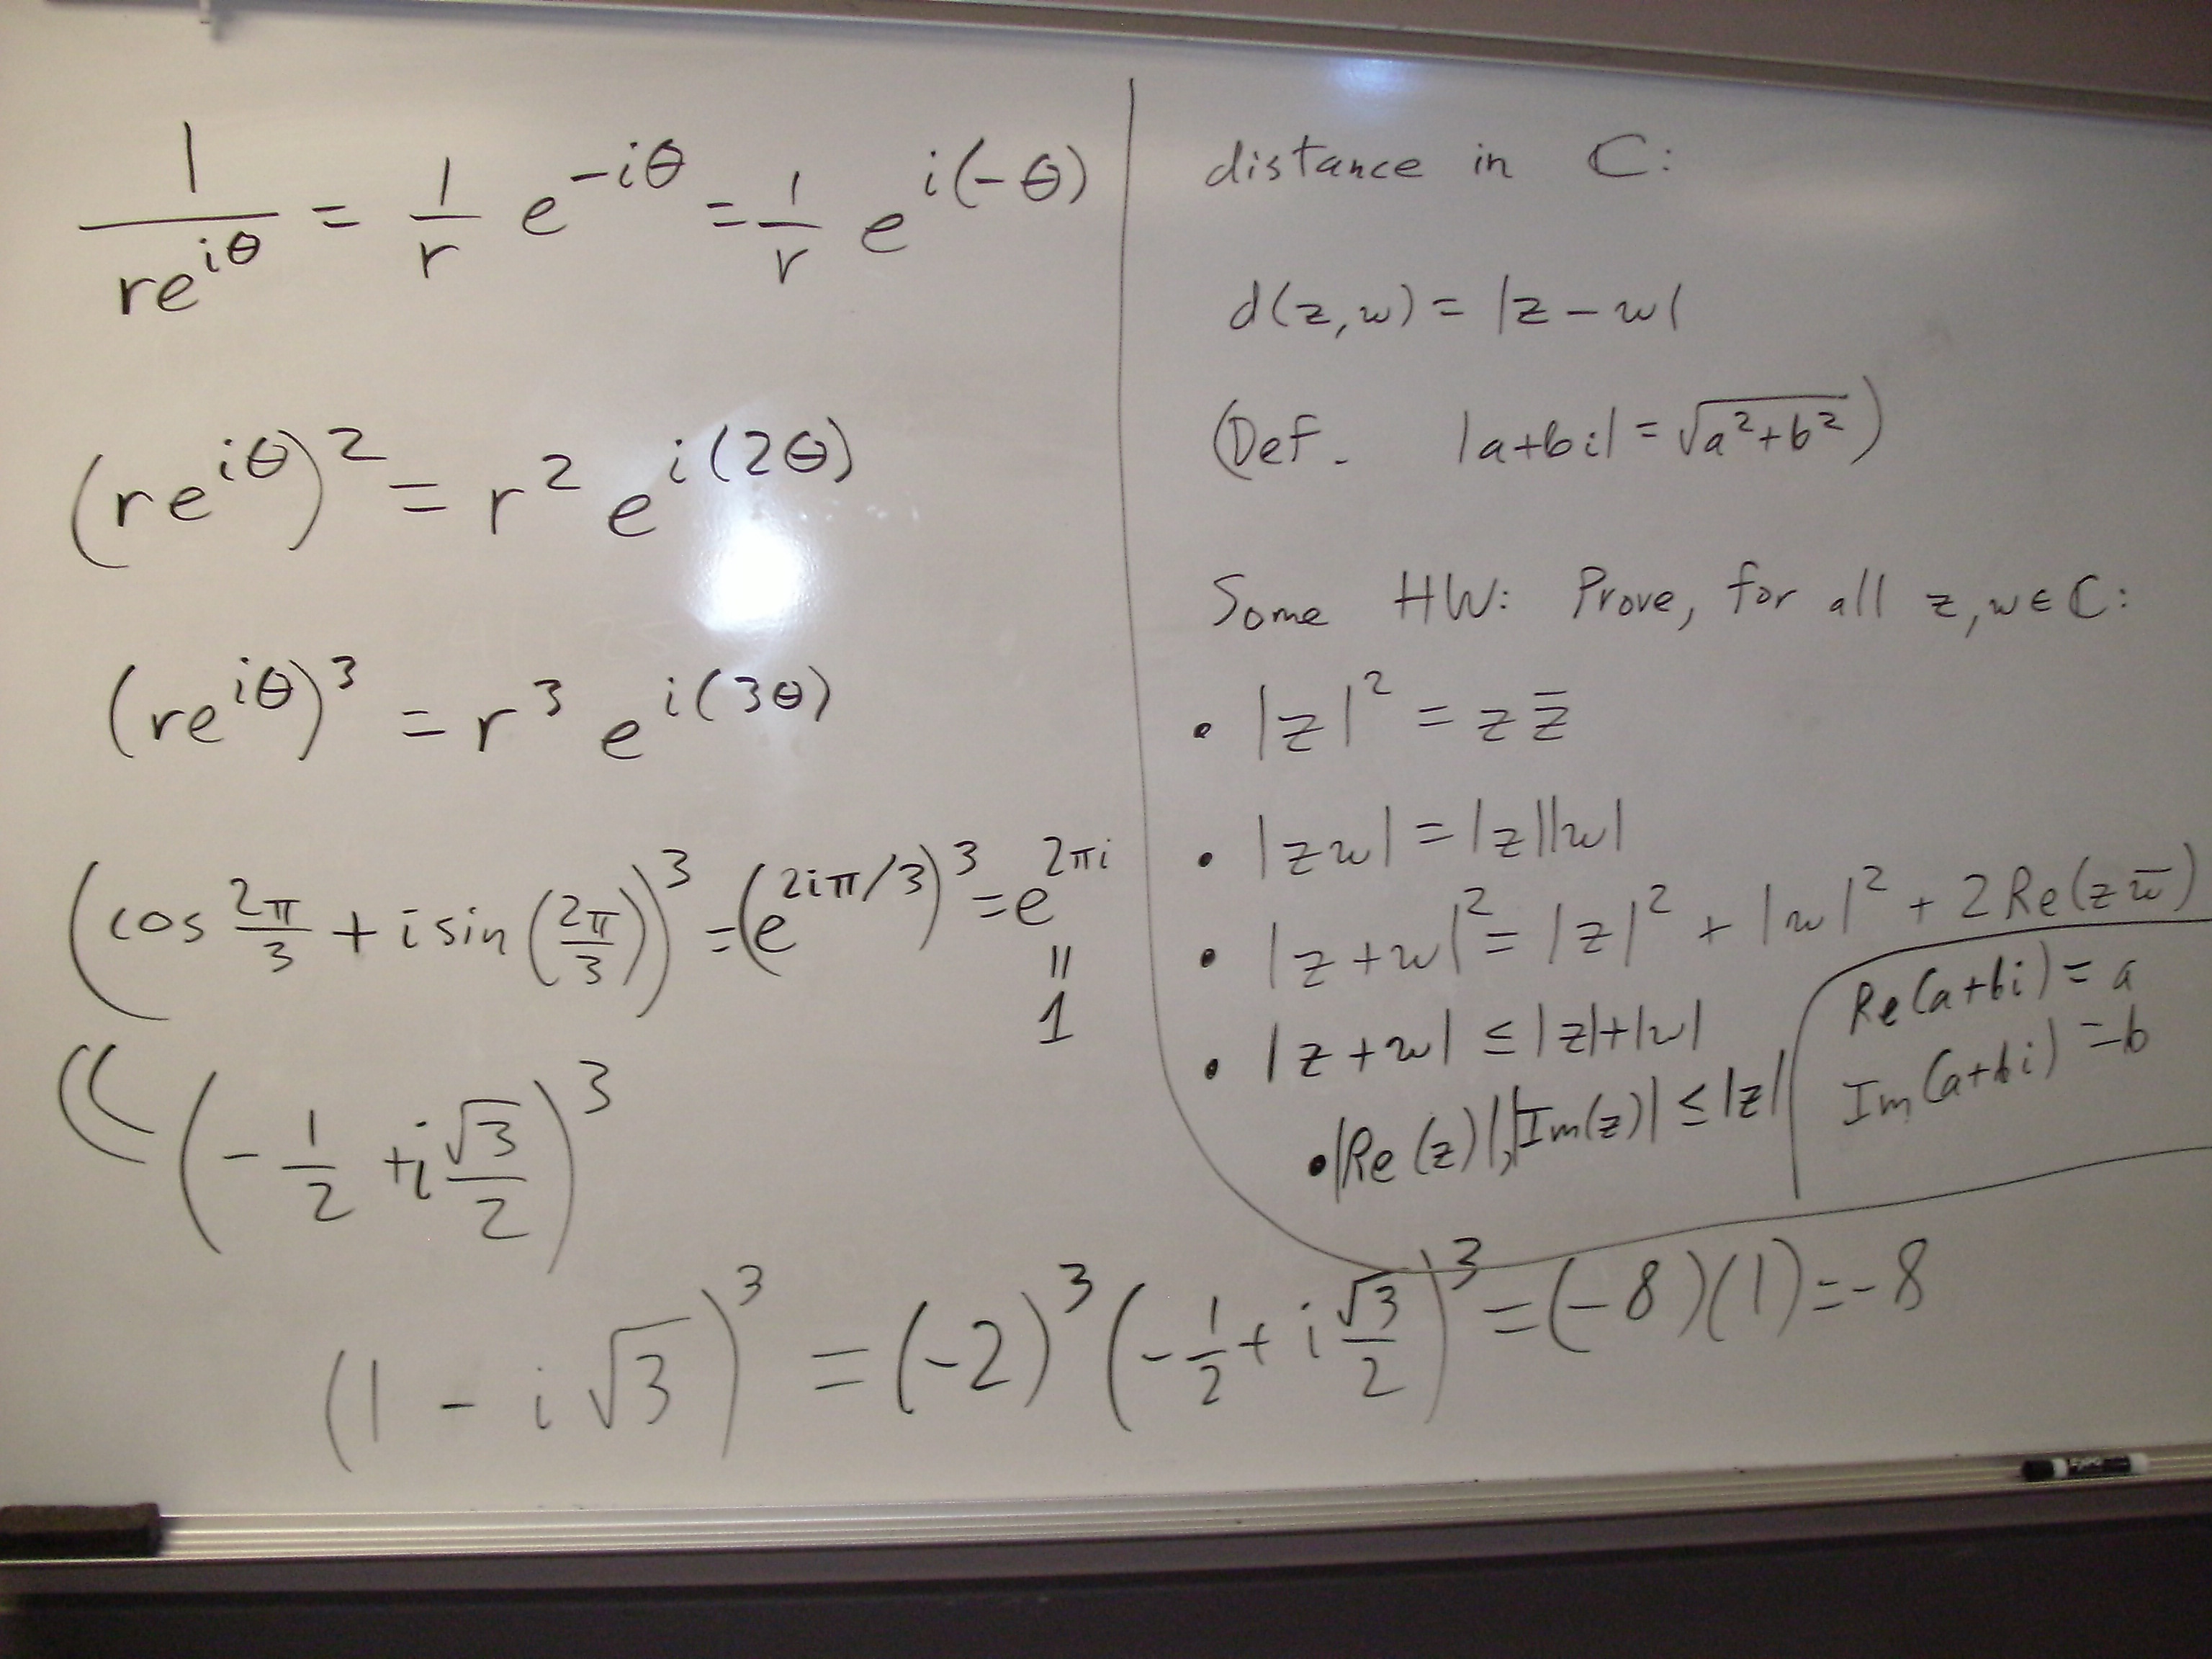 1/(re^{iθ}) = 1/r e^{-iθ} = 1/r e^{i(-θ)}
(re^{iθ})^2 = r^2 e^{i(2θ)}
(re^{iθ})^3 = r^3 e^{i(3θ)}
(cos 2π/3 + i sin (2π/3))^3 = (e^{2iπ/3})^3 = e^{2πi}
=
1
(-1/2 + i √3/2)^3
(1 - i√3)^3 = (-2)^3 (-1/2 + i √3/2)^3 = (-8)(1) = -8
distance in ℂ:
d(z,w) = |z-w|
(Def. |a+bi| = √(a^2+b^2))
Some HW: Prove, for all z,w ∈ ℂ:
• |z|^2 = z z̄
• |zw| = |z||w|
• |z+w|^2 = |z|^2 + |w|^2 + 2Re(z w̄)
• |z+w| ≤ |z|+|w|
• |Re(z)|, |Im(z)| ≤ |z|
Re(a+bi) = a
Im(a+bi) = b